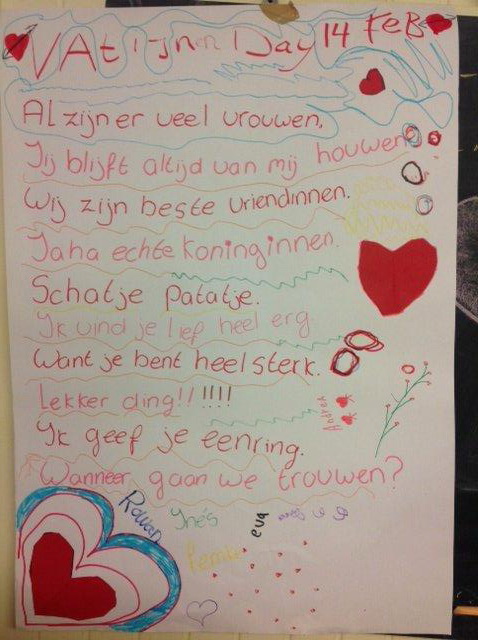 VAtijnn Day 14 FeB
Al zijn er veel vrouwen,
Jij blijft altijd van mij houwen
Wij zijn beste vriendinnen.
Jaha echte koninginnen.
Schatje patatje.
Ik vind je lief heel erg
Want je bent heel sterk.
Lekker ding!! !!!!
Ik geef je eenring.
Wanneer gaan we trouwen?
Rowan
Inés
eva
Femke